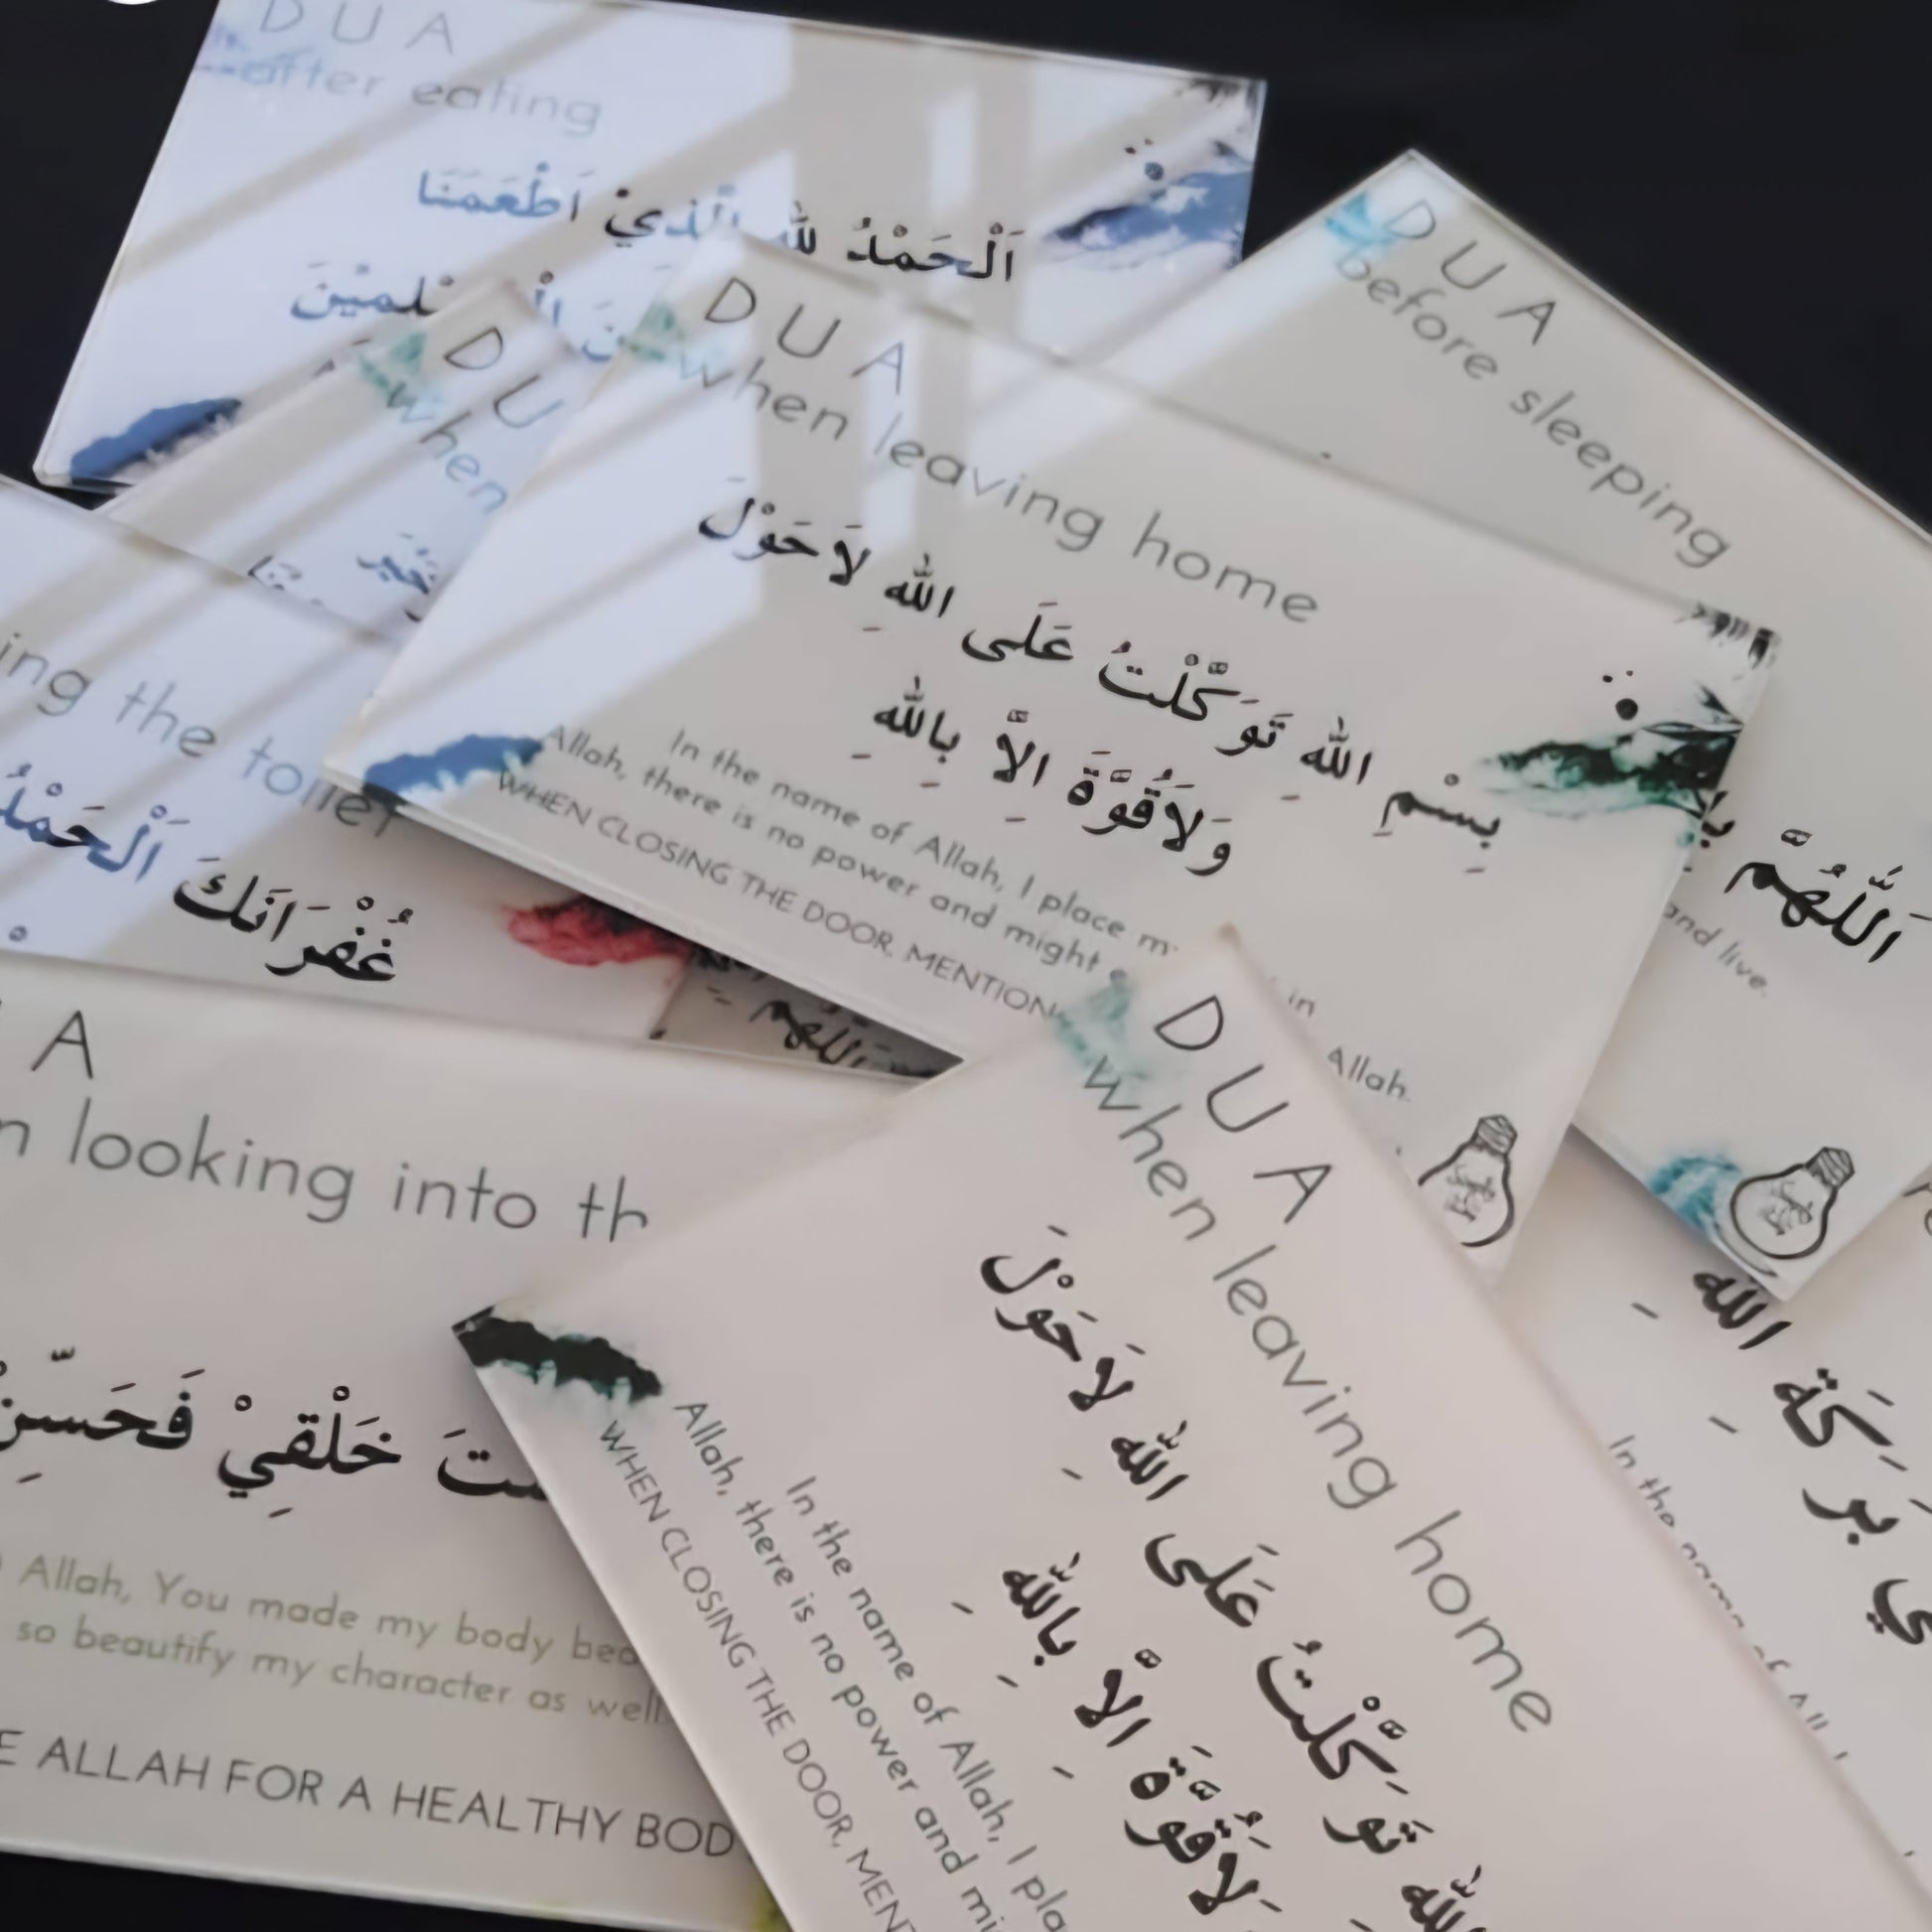 DUA
after eating
اَلْحَمْدُ لِلّٰهِ الَّذِيْ اَطْعَمَنَا
DUA
before sleeping
اَللّٰهُمَّ
and live.
DU
when
DUA
when leaving home
بِسْمِ اللّٰهِ تَوَكَّلْتُ عَلَى اللّٰهِ لاَحَوْلَ
وَلاَقُوَّةَ اِلاَّ بِاللّٰهِ
In the name of Allah, I place in
Allah, there is no power and might Allah.
WHEN CLOSING THE DOOR, MENTION
ing the toilet
غُفْرَانَكَ اَلْحَمْدُ
اَللّٰهُمَّ
A
n looking into th
خَلْقِيْ
Allah, You made my body
so beautify my character as well
E ALLAH FOR A HEALTHY BOD
DUA
when leaving home
اللّٰهِ تَوَكَّلْتُ عَلَى اللّٰهِ لاَحَوْلَ
لاَقُوَّةَ اِلاَّ بِاللّٰهِ
In the name of Allah, I pla
Allah, there is no power and mi
WHEN CLOSING THE DOOR, MENT
اللّٰهِ
In the name of All